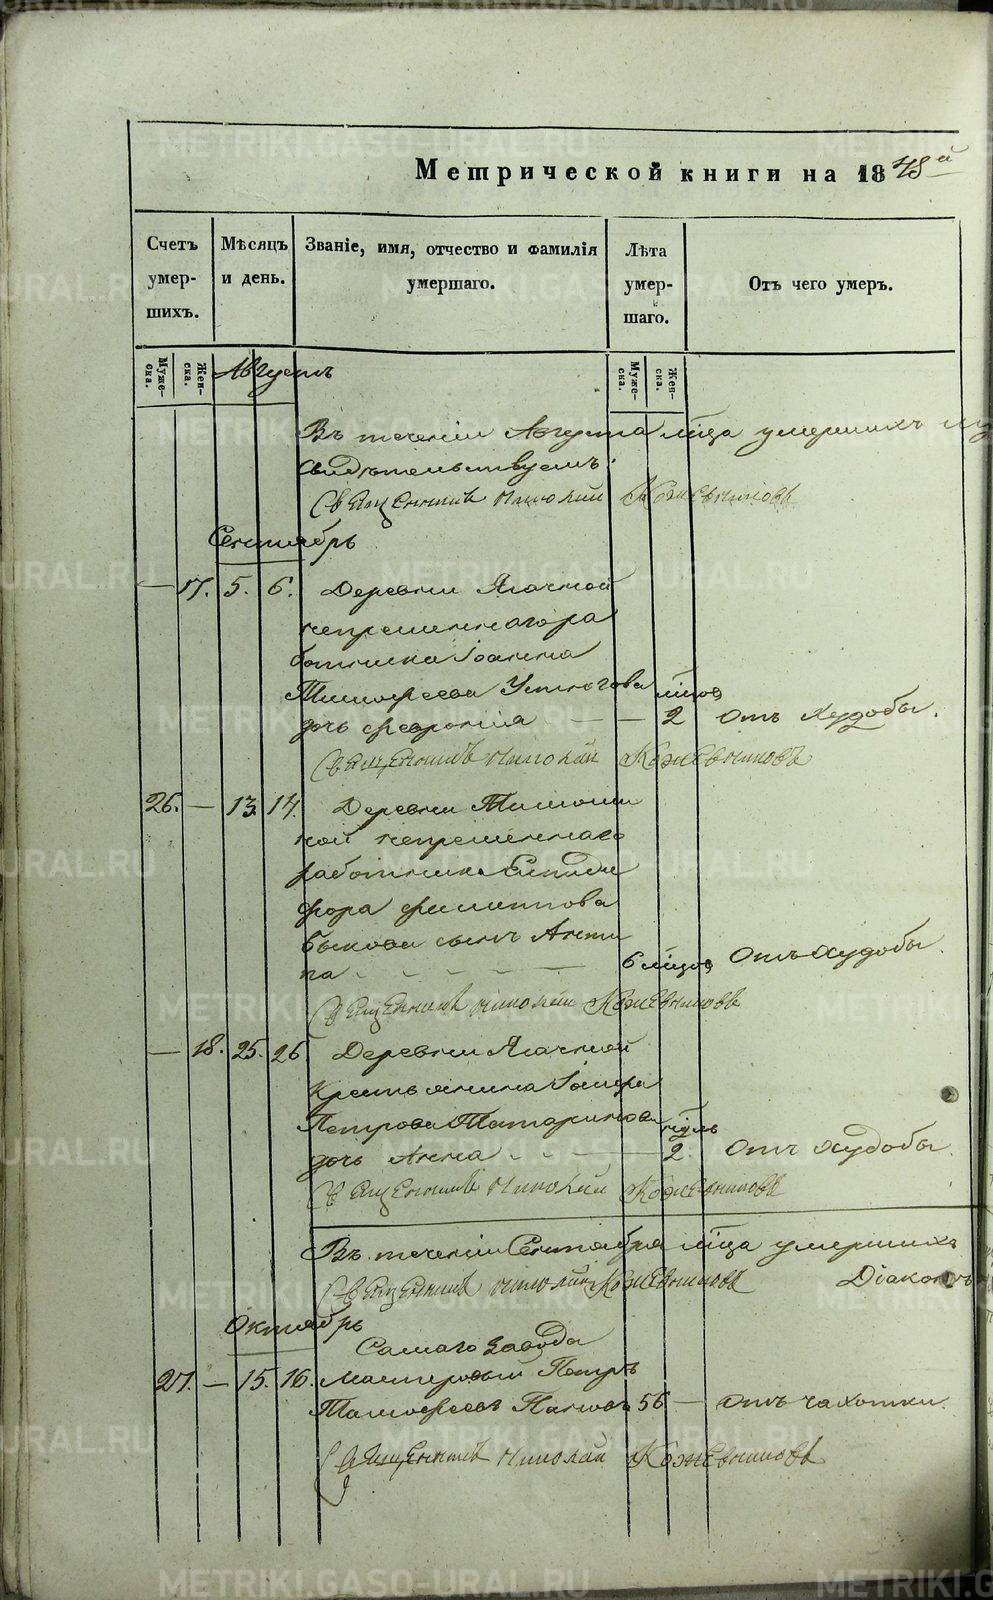 Метрической книги на 1848й
Счетъ умер-шихъ.
Мѣсяцъ и день.
Званіе, имя, отчество и фамилія умершаго.
Лѣта умер-шаго.
Отъ чего умеръ.
Муже-ска.
Жен-ска.
Муже-ска.
Жен-ска.
Августъ
Въ теченіи Августа мца умершихъ
свидѣтельствуемъ:
Священникъ Николай Кожевниковъ
Сентябрь
— 17. 5. 6. Деревни Ялачной
непременнаго ра
ботника Іоанна
Тимофеева Устюгова мцов
дочь Феврония — — 2 отъ худобы.
Священникъ Николай Кожевниковъ
26. — 13. 14. Деревни
ной непременнаго
работника Епиди
фора Филиппова
Быкова сынъ Анти
па — — — 6 мцов отъ худобы.
Священникъ Николай Кожевниковъ
— 18. 25. 26 Деревни Ялачной
Крестьянина
Петрова Татаринова
дочь Анна — — — 2 отъ худобы.
Священникъ Николай Кожевниковъ
Въ теченіи Сентября мца умершихъ
Священникъ Николай Кожевниковъ Діаконъ
Октябрь
Самаго завода
27. — 15. 16. мастеровый Петръ
Тимофеевъ Пановъ 56 — отъ чахотки.
Священникъ Николай Кожевниковъ
METRIKI.GASO-URAL.RU